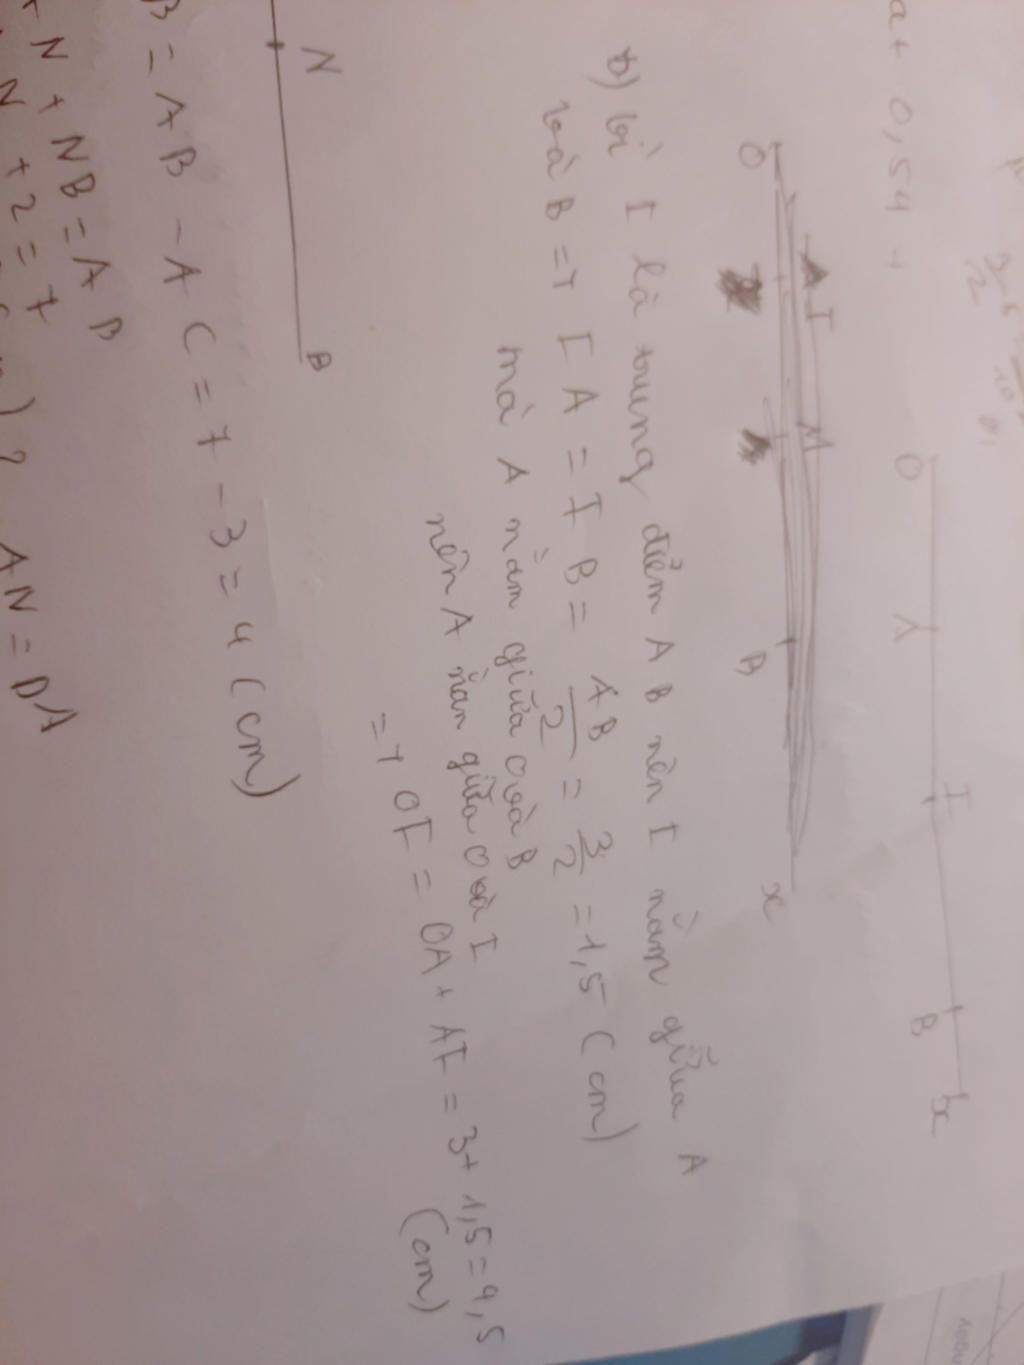 a + 0,54 +
O A I B x
O A I M B x
b) Vì I là trung điểm A B nên I nằm giữa A
và B => I A = I B = AB/2 = 3/2 = 1,5 (cm)
mà A nằm giữa O và B
nên A nằm giữa O và I
=> OI = OA + AI = 3 + 1,5 = 4,5
(cm)
N B
B = AB - AC = 7 - 3 = 4 (cm)
N + NB = AB
N + 2 = 7
AN = DA